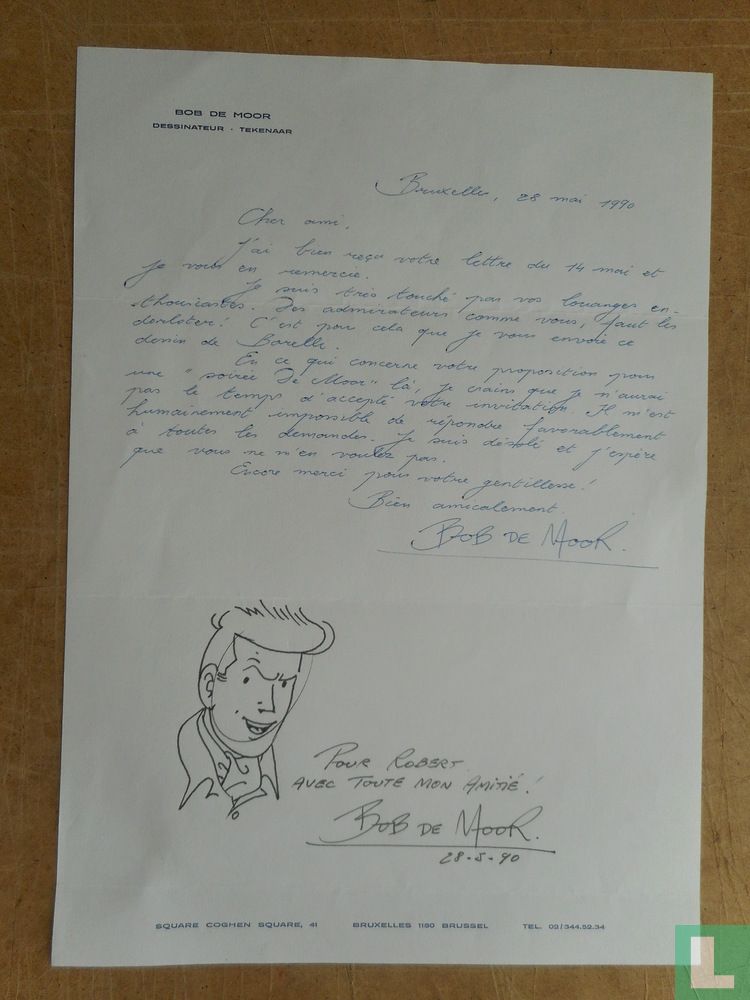 BOB DE MOOR
DESSINATEUR - TEKENAAR
Bruxelles, 28 mai 1990
Cher ami,
J'ai bien reçu votre lettre du 14 mai et
je vous en remercie.
Je suis très touché par vos louanges en-
thousiastes. Des admirateurs comme vous, faut les
dorloter. C'est pour cela que je vous envoie ce
dessin de Barelli.
En ce qui concerne votre proposition pour
une "soirée De Moor" là, je crains que je n'aurai
pas le temps d'accepté votre invitation. Il m'est
humainement impossible de répondre favorablement
à toutes les demandes. Je suis désolé et j'espère
que vous ne m'en voulez pas.
Encore merci pour votre gentillesse!
Bien amicalement.
BOB DE MOOR.
POUR ROBERT
AVEC TOUTE MON AMITIÉ!
BOB DE MOOR.
28-5-90
SQUARE COGHEN SQUARE, 41 BRUXELLES 1180 BRUSSEL TEL. 02/344.52.34
L